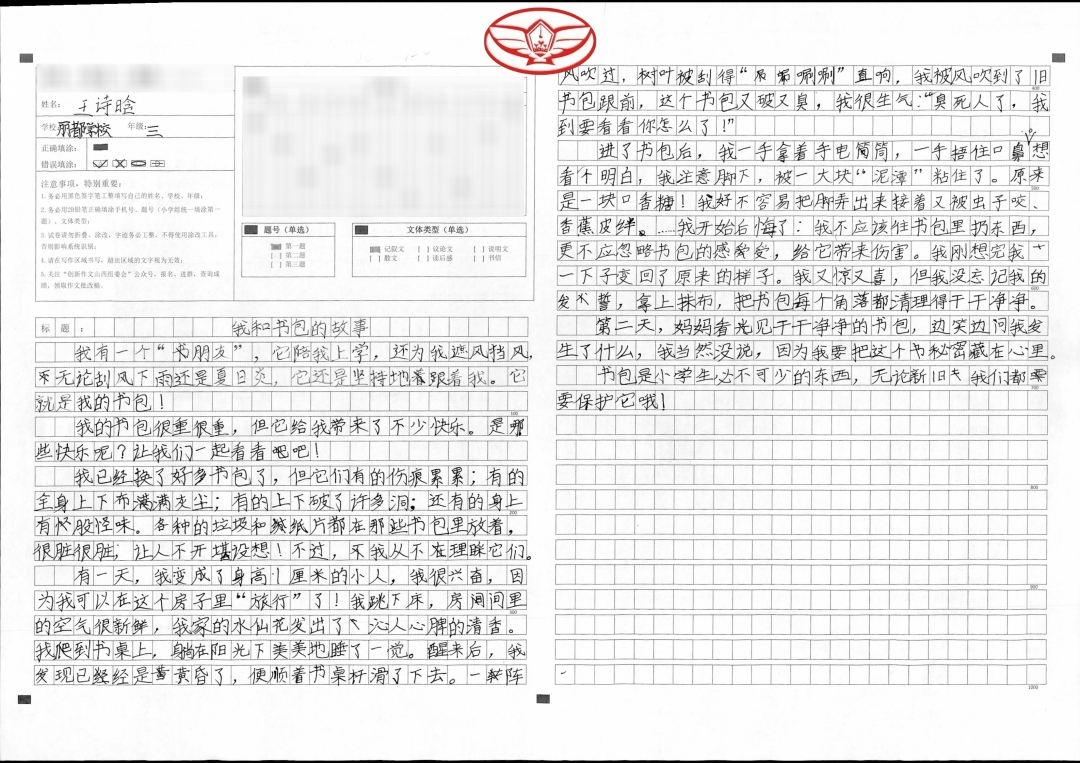 姓名：王诗晗
学校 丽都学校 年级：三
正确填涂：
错误填涂：
注意事项，特别重要：
1.务必用黑色签字笔工整填写自己的姓名、学校、年级；
2.务必用2B铅笔正确填涂手机号、题号（小学组统一填涂第一
题）、文体类型；
3.试卷请勿折叠、涂改，字迹务必工整，不得使用涂改工具，
否则影响系统识别；
4.请在写作区域书写，超出区域的文字视为无效；
5.关注“创新作文山西组委会”公众号，报名、进群、查询成
绩、领取作文批改稿。
题号（单选）
第一题
[ ] 第二题
[ ] 第三题
文体类型（单选）
记叙文 [ ] 议论文 [ ] 说明文
[ ] 散文 [ ] 读后感 [ ] 书信
标题：我和书包的故事
我有一个“书朋友”，它陪我上学，还为我遮风挡风，
无论刮风下雨还是夏日炎，它还是坚持地着跟着我。它
就是我的书包！
100
我的书包很重很重，但它给我带来了不少快乐。是哪
些快乐呢？让我们一起看看吧吧！
我已经换了好多书包了，但它们有的伤痕累累；有的
全身上下布满满灰尘；有的上下破了许多洞；还有的身上
200
有怀股怪味。各种的垃圾和纸片都在那些书包里放着，
很脏很脏，让人不开堪设想！不过，我从不在理睬它们。
有一天，我变成了身高1厘米的小人，我很兴奋，因
为我可以在这个房子里“旅行”了！我跳下床，房间间里
300
的空气很新鲜，我家的水仙花发出了沁人心脾的清香。
我爬到书桌上，躺在阳光下美美地睡了一觉。醒来后，我
发现已经经是黄黄昏了，便顺着书桌杆滑了下去。一阵
风吹过，树叶被刮得“唰唰”直响，我被风吹到了旧
400
书包跟前，这个书包又破又臭，我很生气：“臭死人了，我
到要看看你怎么了！”
进了书包后，我一手拿着手电筒筒，一手捂住口鼻想
看个明白，我注意脚下，被一大块“泥潭”粘住了。原来
500
是一块口香糖！我好不容易把脚弄出来接着又被虫子咬、
香蕉皮绊。……我开始后悔了：我不应该往书包里扔东西，
更不应忽略书包的感爱受，给它带来伤害。我刚想完我
一下子变回了原来的样子。我又惊又喜，但我没忘记我的
600
发誓，拿上抹布，把书包每个角落都清理得干干净净。
第二天，妈妈看光见干干净净的书包，边笑边问我发
生了什么，我当然没说，因为我要把这个书秘密藏在心里。
书包是小学生必不可少的东西，无论新旧我们都
700
要保护它哦！
800
900
1000